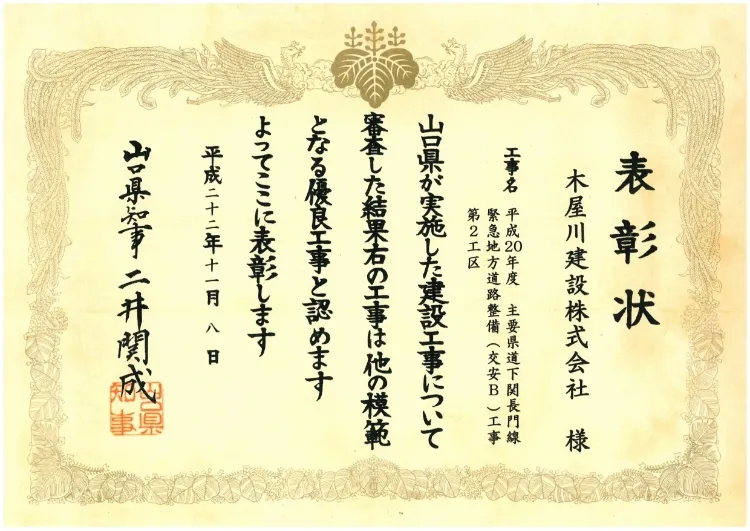 表彰状
木屋川建設株式会社 様
工事名 平成20年度 主要県道下関長門線
緊急地方道路整備(交安B)工事
第2工区
山口県が実施した建設工事について
審査した結果右の工事は他の模範
となる優良工事と認めます
よってここに表彰します
平成二十二年十一月八日
山口県知事 二井関成
山口県
知事